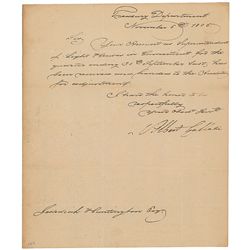 Treasury Department
November 5th 1805
Sir,
Your Account as Superintendent
of Light Houses in Connecticut for the
quarter ending 30th September last, has
been received and handed to the Auditor
for adjustment.
I have the honor to be
respectfully
Your Obed. Servt.
Albert Gallatin
Huntington Esq.